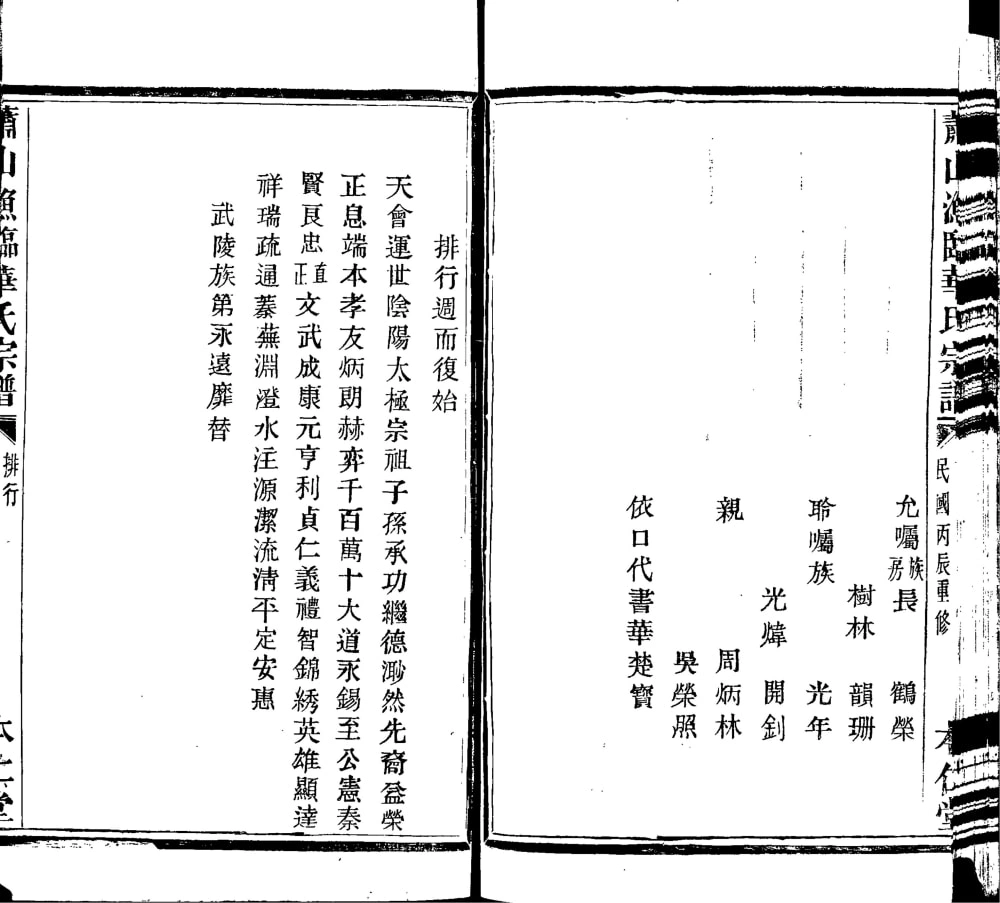 蕭山漁臨華氏宗譜 民國丙辰重修 本仁堂
允囑族房長 鶴榮
樹林 韻珊
聆囑族 光年
光煒 開釗
親 周炳林
吳榮照
依口代書華楚寶
排行週而復始
天會運世陰陽太極宗祖子孫承功繼德渺然先裔益榮
正息端本孝友炳朗赫弈千百萬十大道永錫至公憲泰
賢良忠直正文武成康元亨利貞仁義禮智錦綉英雄顯達
祥瑞疏通蓁蕪淵澄水注源潔流清平定安惠
武陵族第永遠靡替
蕭山漁臨華氏宗譜 排行 本仁堂